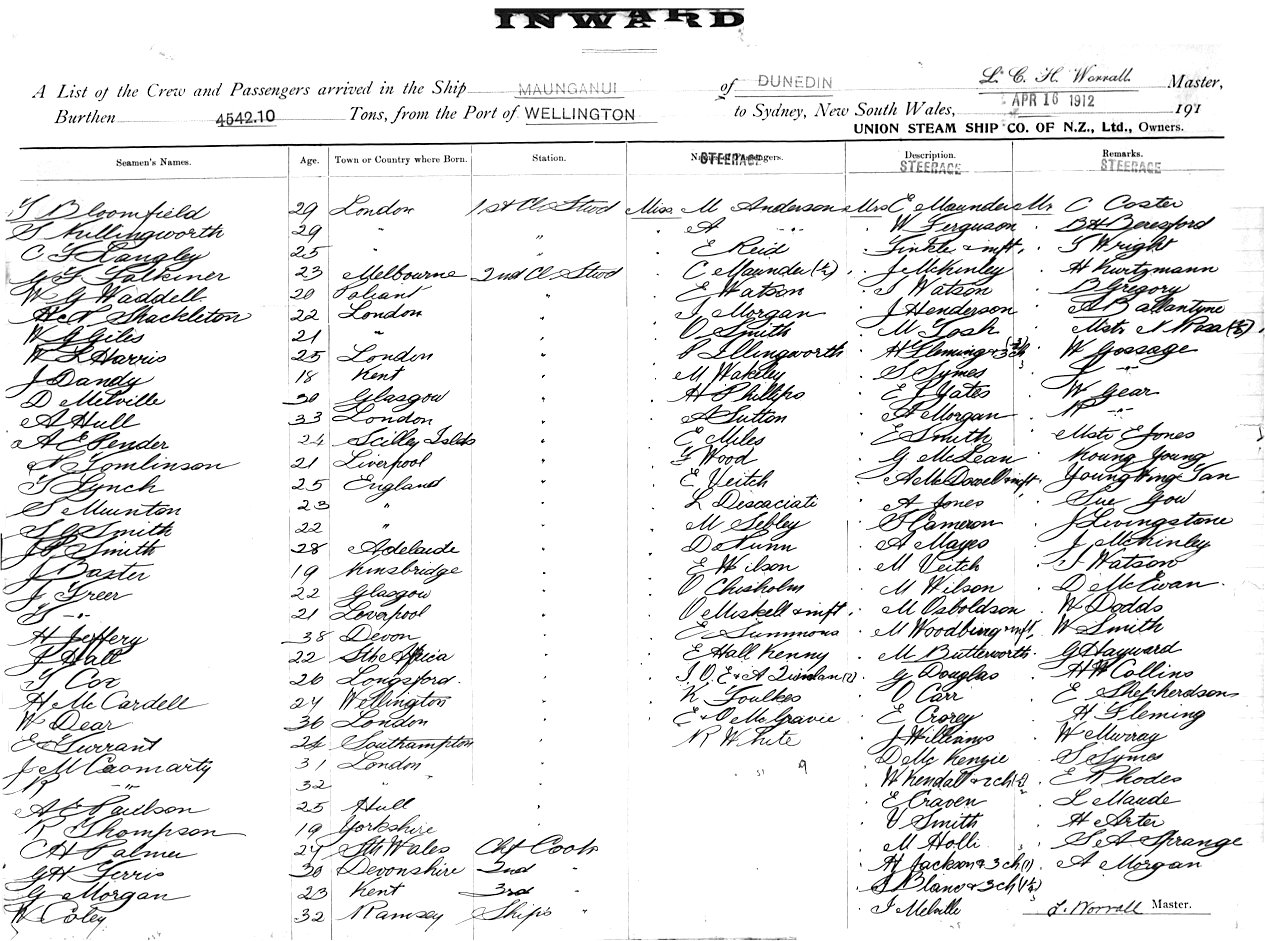 INWARD
A List of the Crew and Passengers arrived in the Ship MAUNGANUI of DUNEDIN L. C. H. Worrall. Master,
Burthen 4542.10 Tons, from the Port of WELLINGTON to Sydney, New South Wales, APR 16 1912 191
UNION STEAM SHIP CO. OF N.Z., Ltd., Owners.
Seamen's Names. Age. Town or Country where Born. Station. Names of Passengers. STEERAGE Description. STEERAGE Remarks. STEERAGE
T Bloomfield 29 London 1st Cl Stwd Miss M Anderson Mrs E Maunder Mr C Coster
S Killingworth 29 " " " A " W Ferguson B H Beresford
C F Langley 25 " " E Reid Tinkle & inft. T Wright
G F Falkiner 23 Melbourne 2nd Cl Stwd C Maunder (½) J McKinley H Kurtzmann
W G Waddell 20 " E Watson J Watson B Gregory
H C F Shackleton 22 London " J Morgan J Henderson A Ballantyne
W G Giles 21 " " O Smith M Tosh Mstr N Rosa (½)
W L Harris 25 London " P Illingworth H Fleming & 3 ch W Gossage
J Dandy 18 Kent " M Wakeley S Symes J "
D Melville 30 Glasgow " H Phillips E J Yates W Gear
A Hull 33 London " A Sutton A Morgan R "
A E Pender 24 Scilley Islds " E Miles E Smith Mstr E Jones
N Tomlinson 21 Liverpool " G Wood G McLean Koung Young
T Lynch 25 England " E Veitch A McDowell & inft. Young Wing Tan
S Munton 23 " " L Discaciati A Jones Sue Gow
S G Smith 22 " " M Sebley T Cameron J Livingstone
J P Smith 28 Adelaide " D Nunn A Mayes J McKinley
J Baxter 19 Kinsbridge " E Wilson M Veitch J Watson
J Greer 22 Glasgow " O Chisholm M Wilson D McEwan
T " 21 Loverpool " O Meskell & inft M Osboldson W Dodds
H Jeffery 38 Devon " E Simmons M Woodbing & inft. W Smith
J Hall 22 Sth Africa " E Hall Kenny M Butterworth G Hayward
T Cox 26 Longsford " J, O, E & A Quinlan (2) G Douglas H W Collins
H McCardell 24 Wellington " K Foulkes O Carr E Shepherdson
W Dear 36 London " E & O McGravie E Crorey H Fleming
E E Gurrant 24 Southampton " N R White J Williams W Murray
J M Cromarty 31 London " D McKenzie S Symes
R " 32 " " 9 W Kendall & 2 ch E Rhodes
A E Paulson 25 Hull " E Craven L Maude
R Thompson 19 Yorkshire " V Smith H Arter
C H Palmer 27 Sth Wales Chf Cook M Holli S A Sprange
G H Ferris 30 Devonshire 2nd " H Jackson & 3 ch (1) A Morgan
G Morgan 23 Kent 3rd " S Blanc & 3 ch (1½)
W Coley 32 Ramsey Ships " J Melville L. Worrall Master.